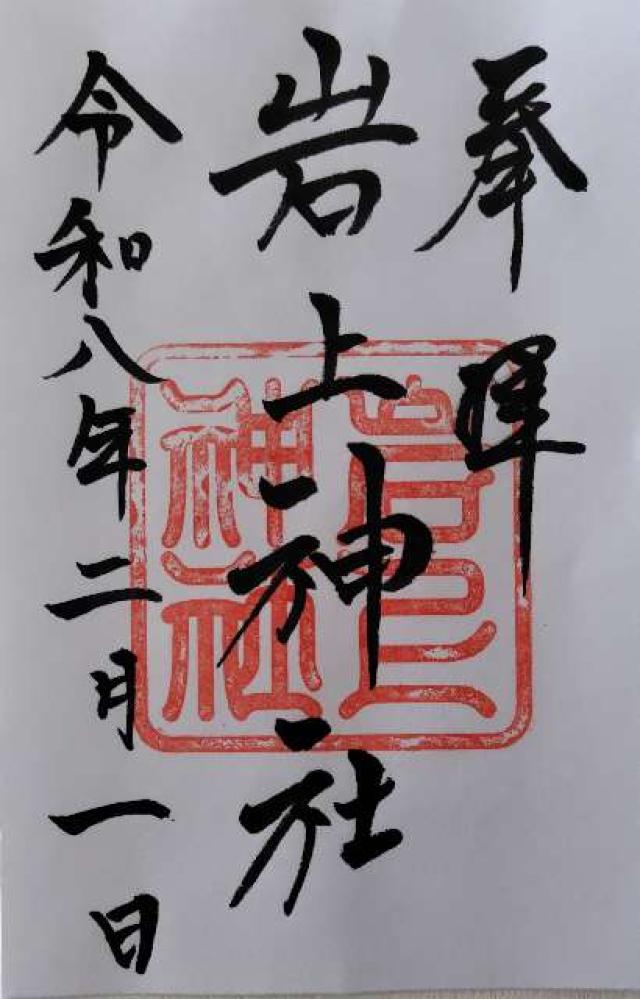 奉拝
岩上神社
令和八年二月一日
岩上神社